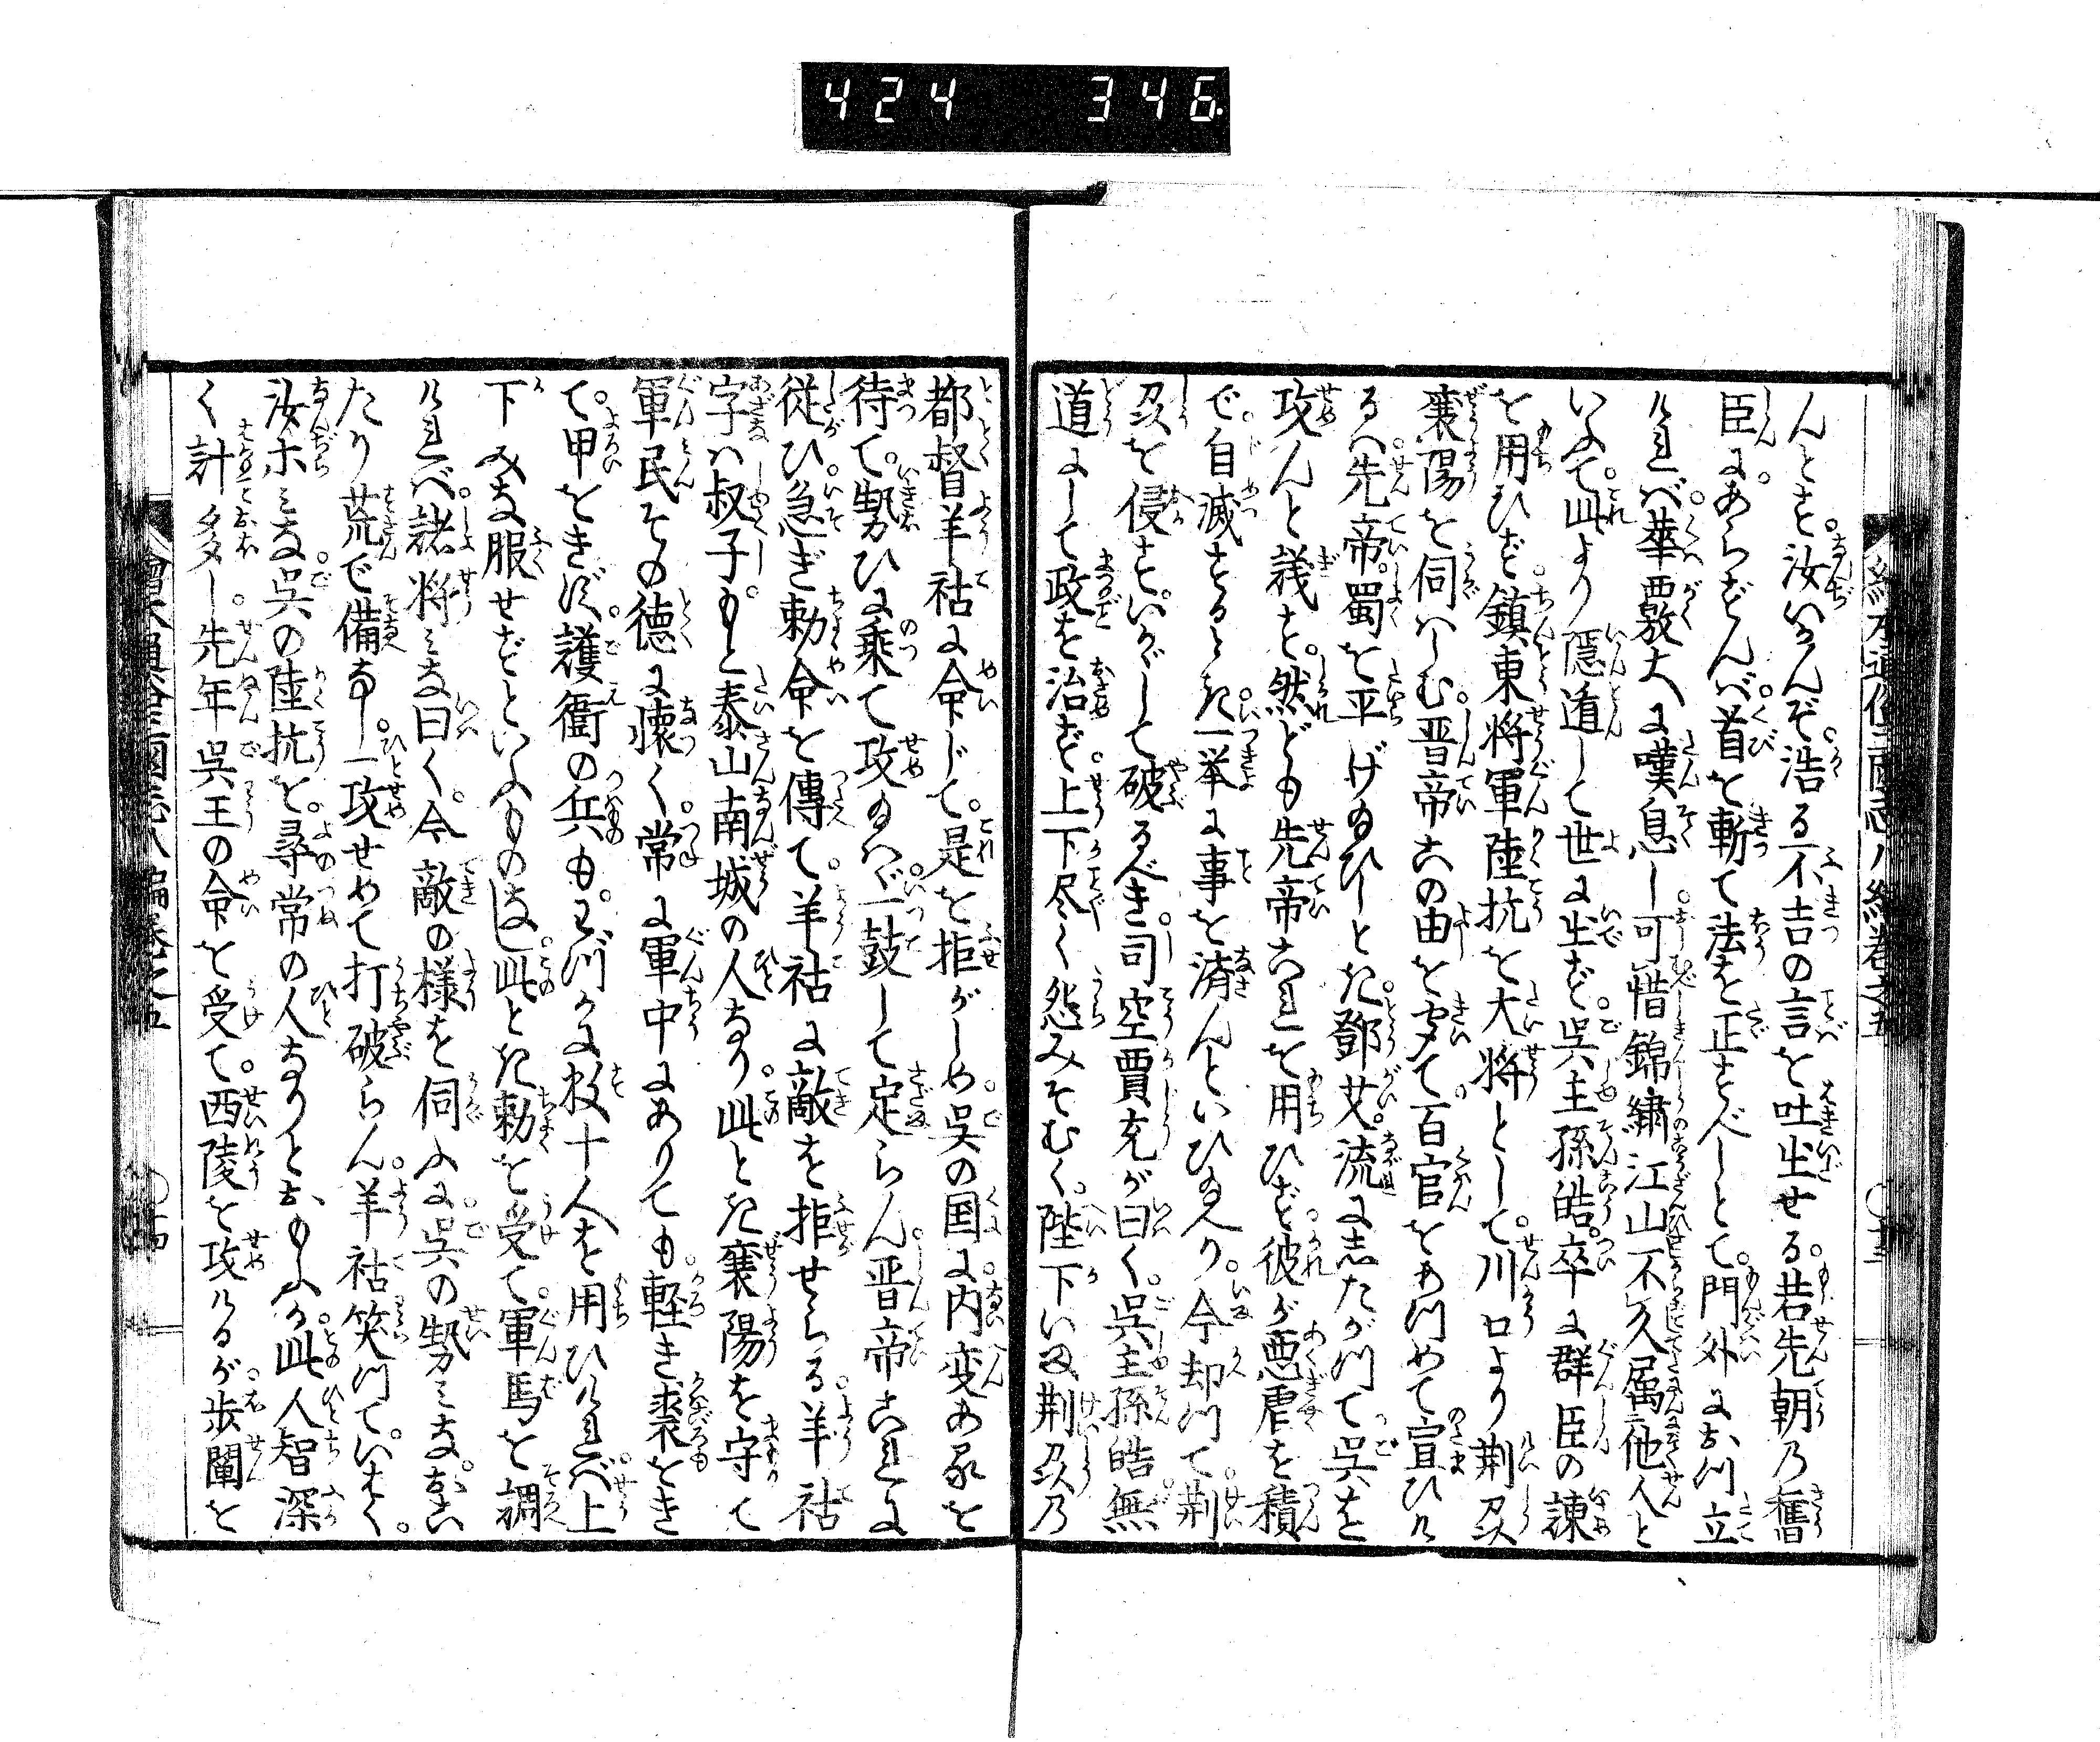 424 346
んとす。汝いかんぞ。浩る不吉の言を吐出せる。若先朝乃舊
臣にあらずんバ。首を斬て法を正すべしとて。門外におつ立
けれバ。華覈大に嘆息し。可惜錦繍江山不久属他人と
いふて。此より隠遁して世に出ず。呉主孫皓。卒に群臣の諫
を用ひず。鎮東将軍陸抗を大将として。川口より荆及
襄陽を伺ハしむ。晋帝この由を聞て百官をあつめて宣ひけ
るハ。先帝。蜀を平げ給ひしとき。鄧艾。流に志たがつて呉を
攻んと議す。然ども先帝これを用ひず。彼が悪虐を積
で。自滅するとき。一挙に事を濟んといひ給へり。今却つて荆
及を侵す。いかゞして破るべき。司空賈充が曰く。呉主孫皓無
道にして政を治ず。上下尽く怨みそむく。陛下いま荆及乃
都督羊祜に命じて。是を拒がしめ。呉の国に。内変あるを
待て。勢ひに乗て攻給ハヾ。一鼓して定らん。晋帝これに
従ひ。急ぎ勅命を傳て。羊祜に敵を拒せらる。羊祜
字ハ叔子。もと泰山南城の人なり。此とき襄陽を守て
軍民その徳に懐く。常に軍中にありても。軽き裘をき
て。甲をきず。護衞の兵も。わづかに数十人を用ひけれバ。上
下みな服せずといふものなし。此とき勅を受て。軍馬を調
けれバ。諸将みな曰く。今敵の様を伺ふに。呉の勢みな。おこ
たり荒で備なし。一攻せめて打破らん。羊祜笑つて。いはく。
汝ホミな。呉の陸抗を。尋常の人なりとおもふか。此人智深
く計多し。先年呉王の命を受て。西陵を攻けるが。歩闡を